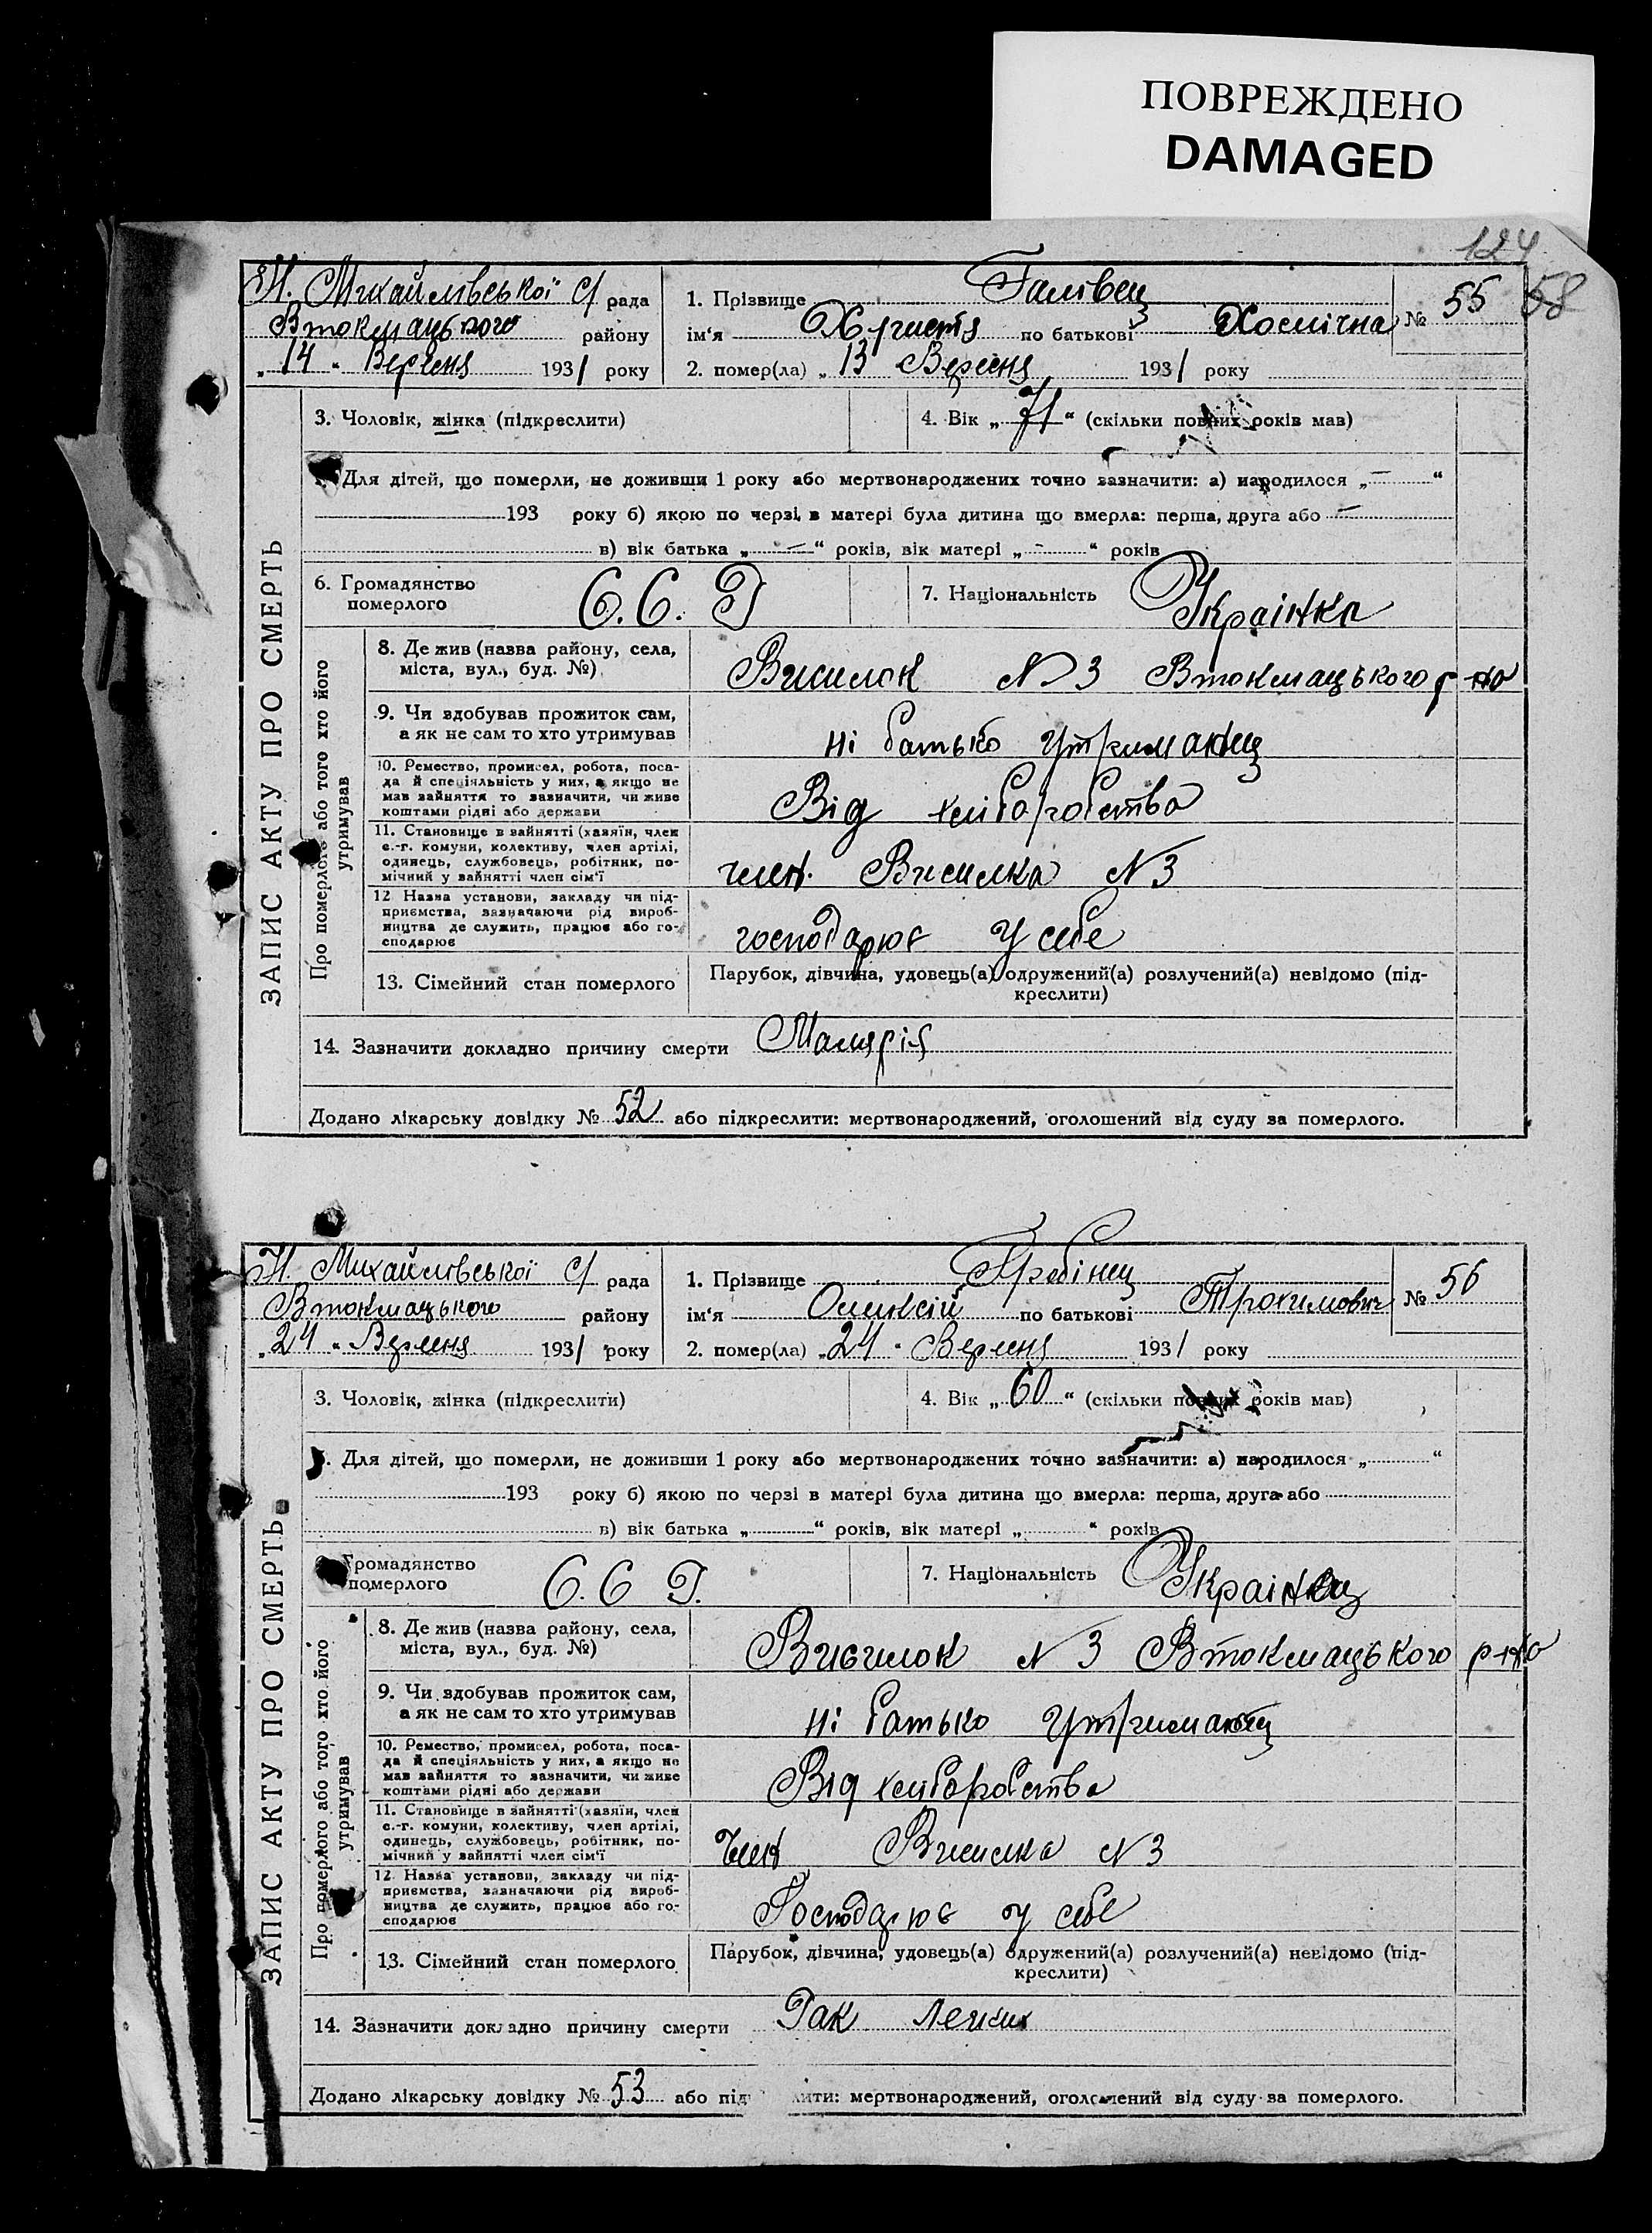 ПОВРЕЖДЕНО
DAMAGED
124
58
Н. Михайлівської с/ рада
Втокмацького району
„14“ Вересня 1931 року
1. Прізвище Галівец
ім‘я Христя по батькові
№ 55
2. помер(ла) „13 Вересня 1931 року
ЗАПИС АКТУ ПРО СМЕРТЬ
3. Чоловік, жінка (підкреслити)
4. Вік „71“ (скільки повних років мав)
Для дітей, що померли, не доживши 1 року або мертвонароджених точно зазначити: а) народилося „—“
193 року б) якою по черзі в матері була дитина що вмерла: перша, друга або —
в) вік батька „—“ років, вік матері „-“ років
6. Громадянство
померлого
С.С. Р
7. Національність Українка
Про померлого або того хто його
утримував
8. Де жив (назва району, села,
міста, вул., буд. №)
Висилок № 3 Втокмацького р-но
9. Чи здобував прожиток сам,
а як не сам то хто утримував
ні батько утриманец
10. Ремество, промисел, робота, поса-
да й спеціяльність у них, а якщо не
мав зайняття то зазначити, чи живе
коштами рідні або держави
Від хліборобства
11. Становище в зайнятті (хазяїн, член
с.-г. комуни, колективу, член артілі,
одинець, службовець, робітник, по-
мічний у зайнятті член сім'ї
член. Висилка N 3
12. Назва установи, закладу чи під-
приємства, зазначаючи рід вироб-
ництва де служить, працює або го-
сподарює
господарює у себе
13. Сімейний стан померлого
Парубок, дівчина, удовець(а) одружений(а) розлучений(а) невідомо (під-
креслити)
14. Зазначити докладно причину смерти Малярія
Додано лікарську довідку № 52 або підкреслити: мертвонароджений, оголошений від суду за померлого.
Н. Михайлівської с/ рада
Втокмацького району
„24“ Вересня 1931 року
1. Прізвище Гребінец
ім‘я Оликсій по батькові Трохимович
№ 56
2. помер(ла) „24“ Вересня 1931 року
ЗАПИС АКТУ ПРО СМЕРТЬ
3. Чоловік, жінка (підкреслити)
4. Вік „60“ (скільки повних років мав)
Для дітей, що померли, не доживши 1 року або мертвонароджених точно зазначити: а) народилося „ “
193 року б) якою по черзі в матері була дитина що вмерла: перша, друга або
в) вік батька „ “ років, вік матері „ “ років
Громадянство
померлого
С.С Р.
7. Національність Українец
Про померлого або того хто його
утримував
8. Де жив (назва району, села,
міста, вул., буд. №)
Висилок N 3 Втокмацького р-но
9. Чи здобував прожиток сам,
а як не сам то хто утримував
ні батько утриманец
10. Ремество, промисел, робота, поса-
да й спеціяльність у них, а якщо не
мав зайняття то зазначити, чи живе
коштами рідні або держави
Від хліборобства
11. Становище в зайнятті (хазяїн, член
с.-г. комуни, колективу, член артілі,
одинець, службовець, робітник, по-
мічний у зайнятті член сім'ї
член Висилка N 3
12. Назва установи, закладу чи під-
приємства, зазначаючи рід вироб-
ництва де служить, працює або го-
сподарює
Господарює у себе
13. Сімейний стан померлого
Парубок, дівчина, удовець(а) одружений(а) розлучений(а) невідомо (під-
креслити)
14. Зазначити докладно причину смерти Рак Легких
Додано лікарську довідку № 53 або під ити: мертвонароджений, оголошений від суду за померлого.